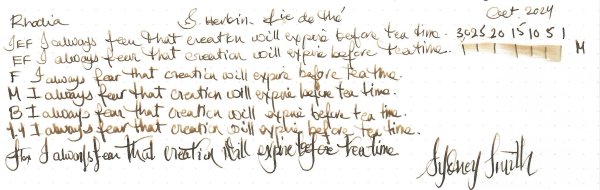 Rhodia J. Herbin Lie de thé Oct. 2024
JEF I always fear that creation will expire before tea time. 30 25 20 15 10 5 1
EF I always fear that creation will expire before tea time. M
F I always fear that creation will expire before tea time.
M I always fear that creation will expire before tea time.
B I always fear that creation will expire before tea time.
1.1 I always fear that creation will expire before tea time.
flex I always fear that creation will expire before tea time
Sydney Smith